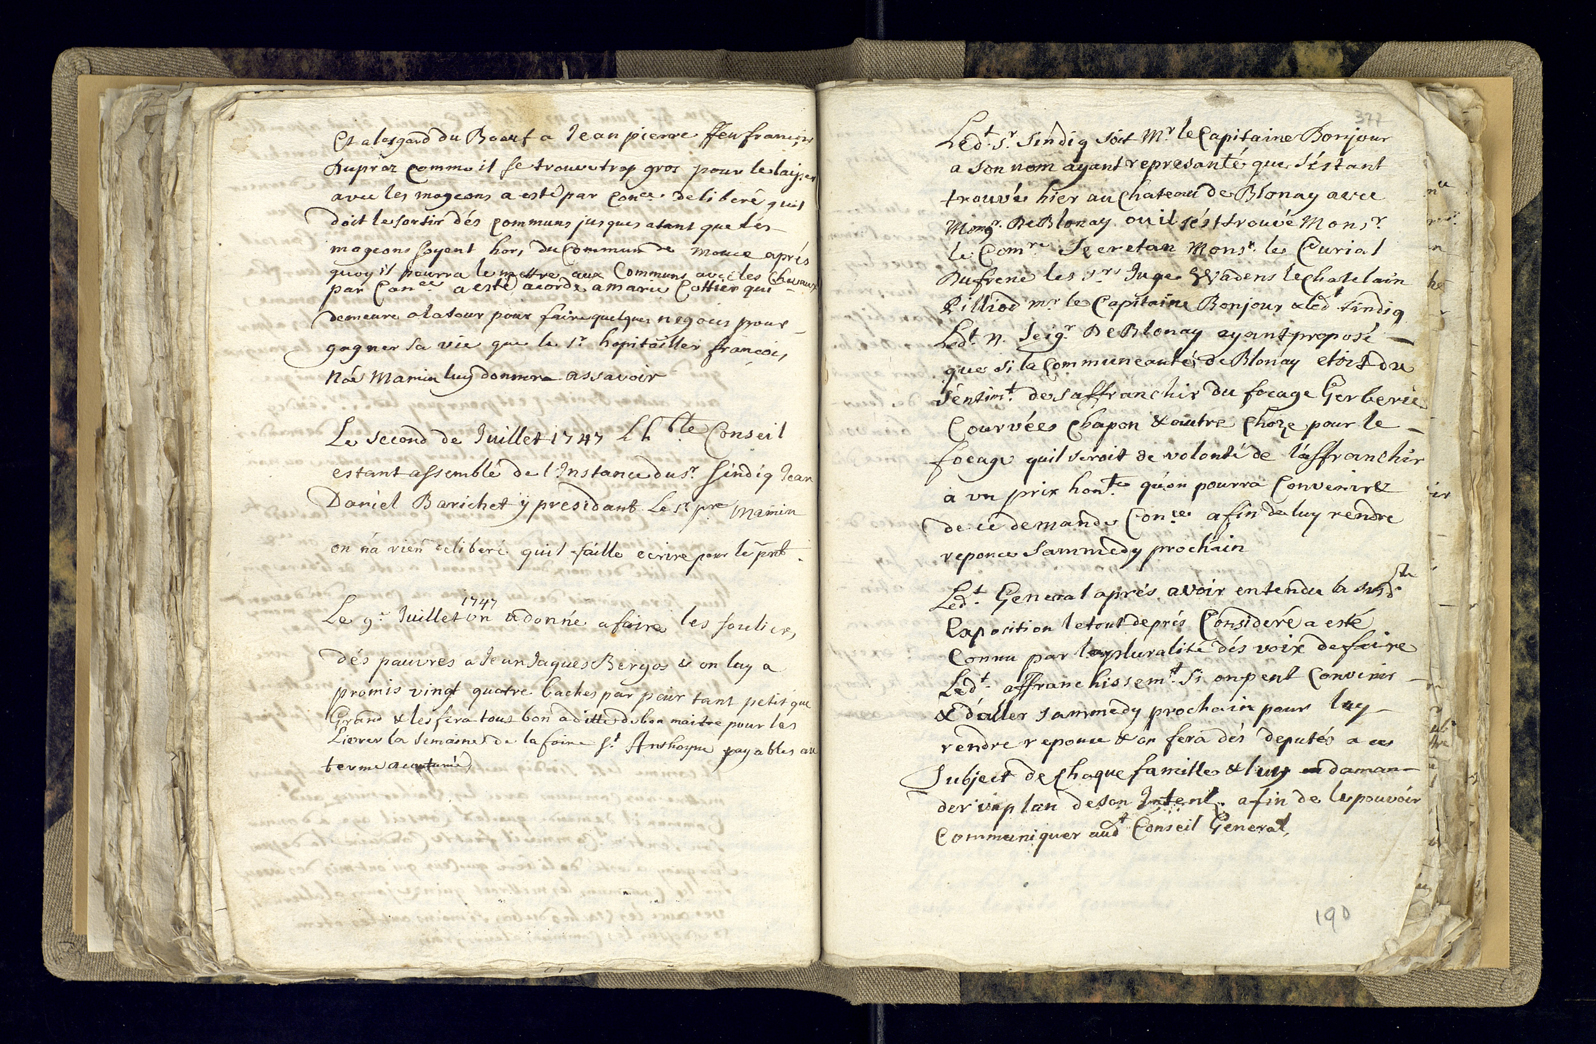 Et alesgard du Boeuf a Jean pierre ffeu françois
Dupraz comme il se trouve trop gros pour le laisser
avec les mogeons a esté par Con.ce deliberé quil
doit le sortir dés communs jusques atant que les
mogeons soyent hors du Commun de mouce aprés
quoy il pourra le mettre aux Communs avec les Chevaux
par Con.ce a esté acordé a marie Cottier qui
demeure a la tour pour faire quelques negoces pour
gagner sa vie que le s.r hopitallier françois
Noé Mamin luy donnera assavoir
Le second de Juillet 1747 L h.ble Conseil
estant assemblé de l'Instance du s.r sindiq Jean
Daniel Barichet ÿ presidant Le s.r p.re Mamin
on n'a rien deliberé quil faille ecrire pour le p.nt
1747
Le 9.e Juillet on adonné a faire les souliers
dés pauvres a Jean Jaques Bergos & on luy a
promis vingt quatre baches par pair tant petis que
Grand & les fera tous bon a ditte de bon maitre pour les
Livrer la semaine de la foire s.t Anthoyne payables au
terme acoutumé
377
Led.t s.r sindiq soit M.r le Capitaine Bonjour
a son nom ayant represanté que s'éstant
trouvé hier au Chateau de Blonay avec
Mons.r De Blonay ou il s'ést trouvé Mons.r
le Com.re Secretan Mons.r le Curial
Dufrene les s.rs Juge Wadens le Chatelain
Pilliod m.r le Capitaine Bonjour & led.t sindiq
Led.t n. seig.r De Blonay ayant proposé
que si la Communeauté de Blonay etoit du
sentim.t de s'affranchir du focage Gerberie
Courvées Chapon & autre Choze pour le
focage quil seroit de volonté de l'affranchir
a un prix hon.te qu'on pourra Convenir &
de ce demande Con.ce afin de luy rendre
reponce sammedy prochain
Led.t General aprés avoir entendu la susd.te
Exposition le tout deprés Consideré a esté
Connu par la pluralité dés voix de faire
Led.t affranchissem.t si on peut Convenir
& d'aller sammedy prochain pour luy
rendre reponce & on fera dés deputés a ces
subject de chaque familles & luy en daman-
der un plan de son Intent. afin de le pouvoir
Communiquer aud.t Conseil General
190